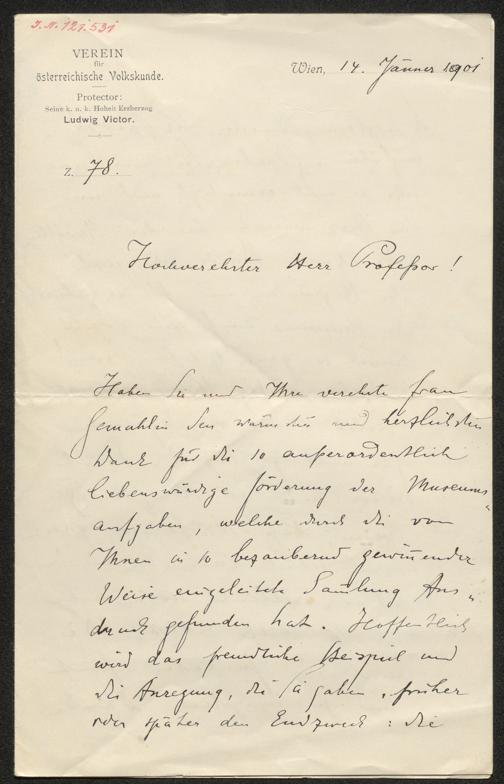 J.N. 121.531
VEREIN
für
österreichische Volkskunde.
Protector:
Seine k. u. k. Hoheit Erzherzog
Ludwig Victor.
Wien, 14. Jänner 1901
Z. 78.
Hochverehrter Herr Profeßor!
Haben Sie und Ihre verehrte Frau
Gemahlin den wärmsten und herzlichsten
Dank für die so außerordentlich
liebenswürdige Förderung der Museums„
aufgaben, welche durch die von
Ihnen in so bezaubernd gewinnender
Weise eingeleitete Samlung Aus„
druck gefunden hat. Hoffentlich
wird das freundliche Beispiel und
die Anregung, die Sie gaben, früher
oder später den Endzweck: die